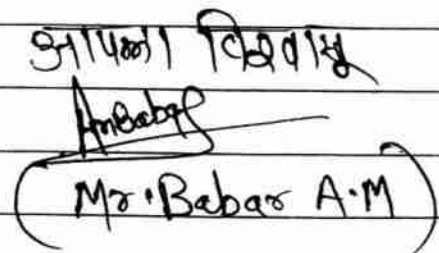 आपला विश्वासू
AmBabar
(Mr. Babar A.M)